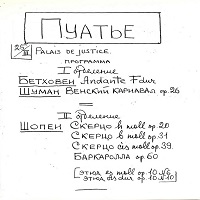 ПУАТЬЕ
26/III PALAIS DE JUSTICE.
ПРОГРАММА
I ОТДЕЛЕНИЕ
БЕТХОВЕН Andante F dur
ШУМАН ВЕНСКИЙ КАРНАВАЛ op. 26
II ОТДЕЛЕНИЕ
ШОПЕН СКЕРЦО h moll op. 20
СКЕРЦО b moll op. 31
СКЕРЦО cis moll op 39.
БАРКАРОЛЛА op. 60
[ЭТЮД es moll op. 10 №6
ЭТЮД Ges dur op. 10 №10]